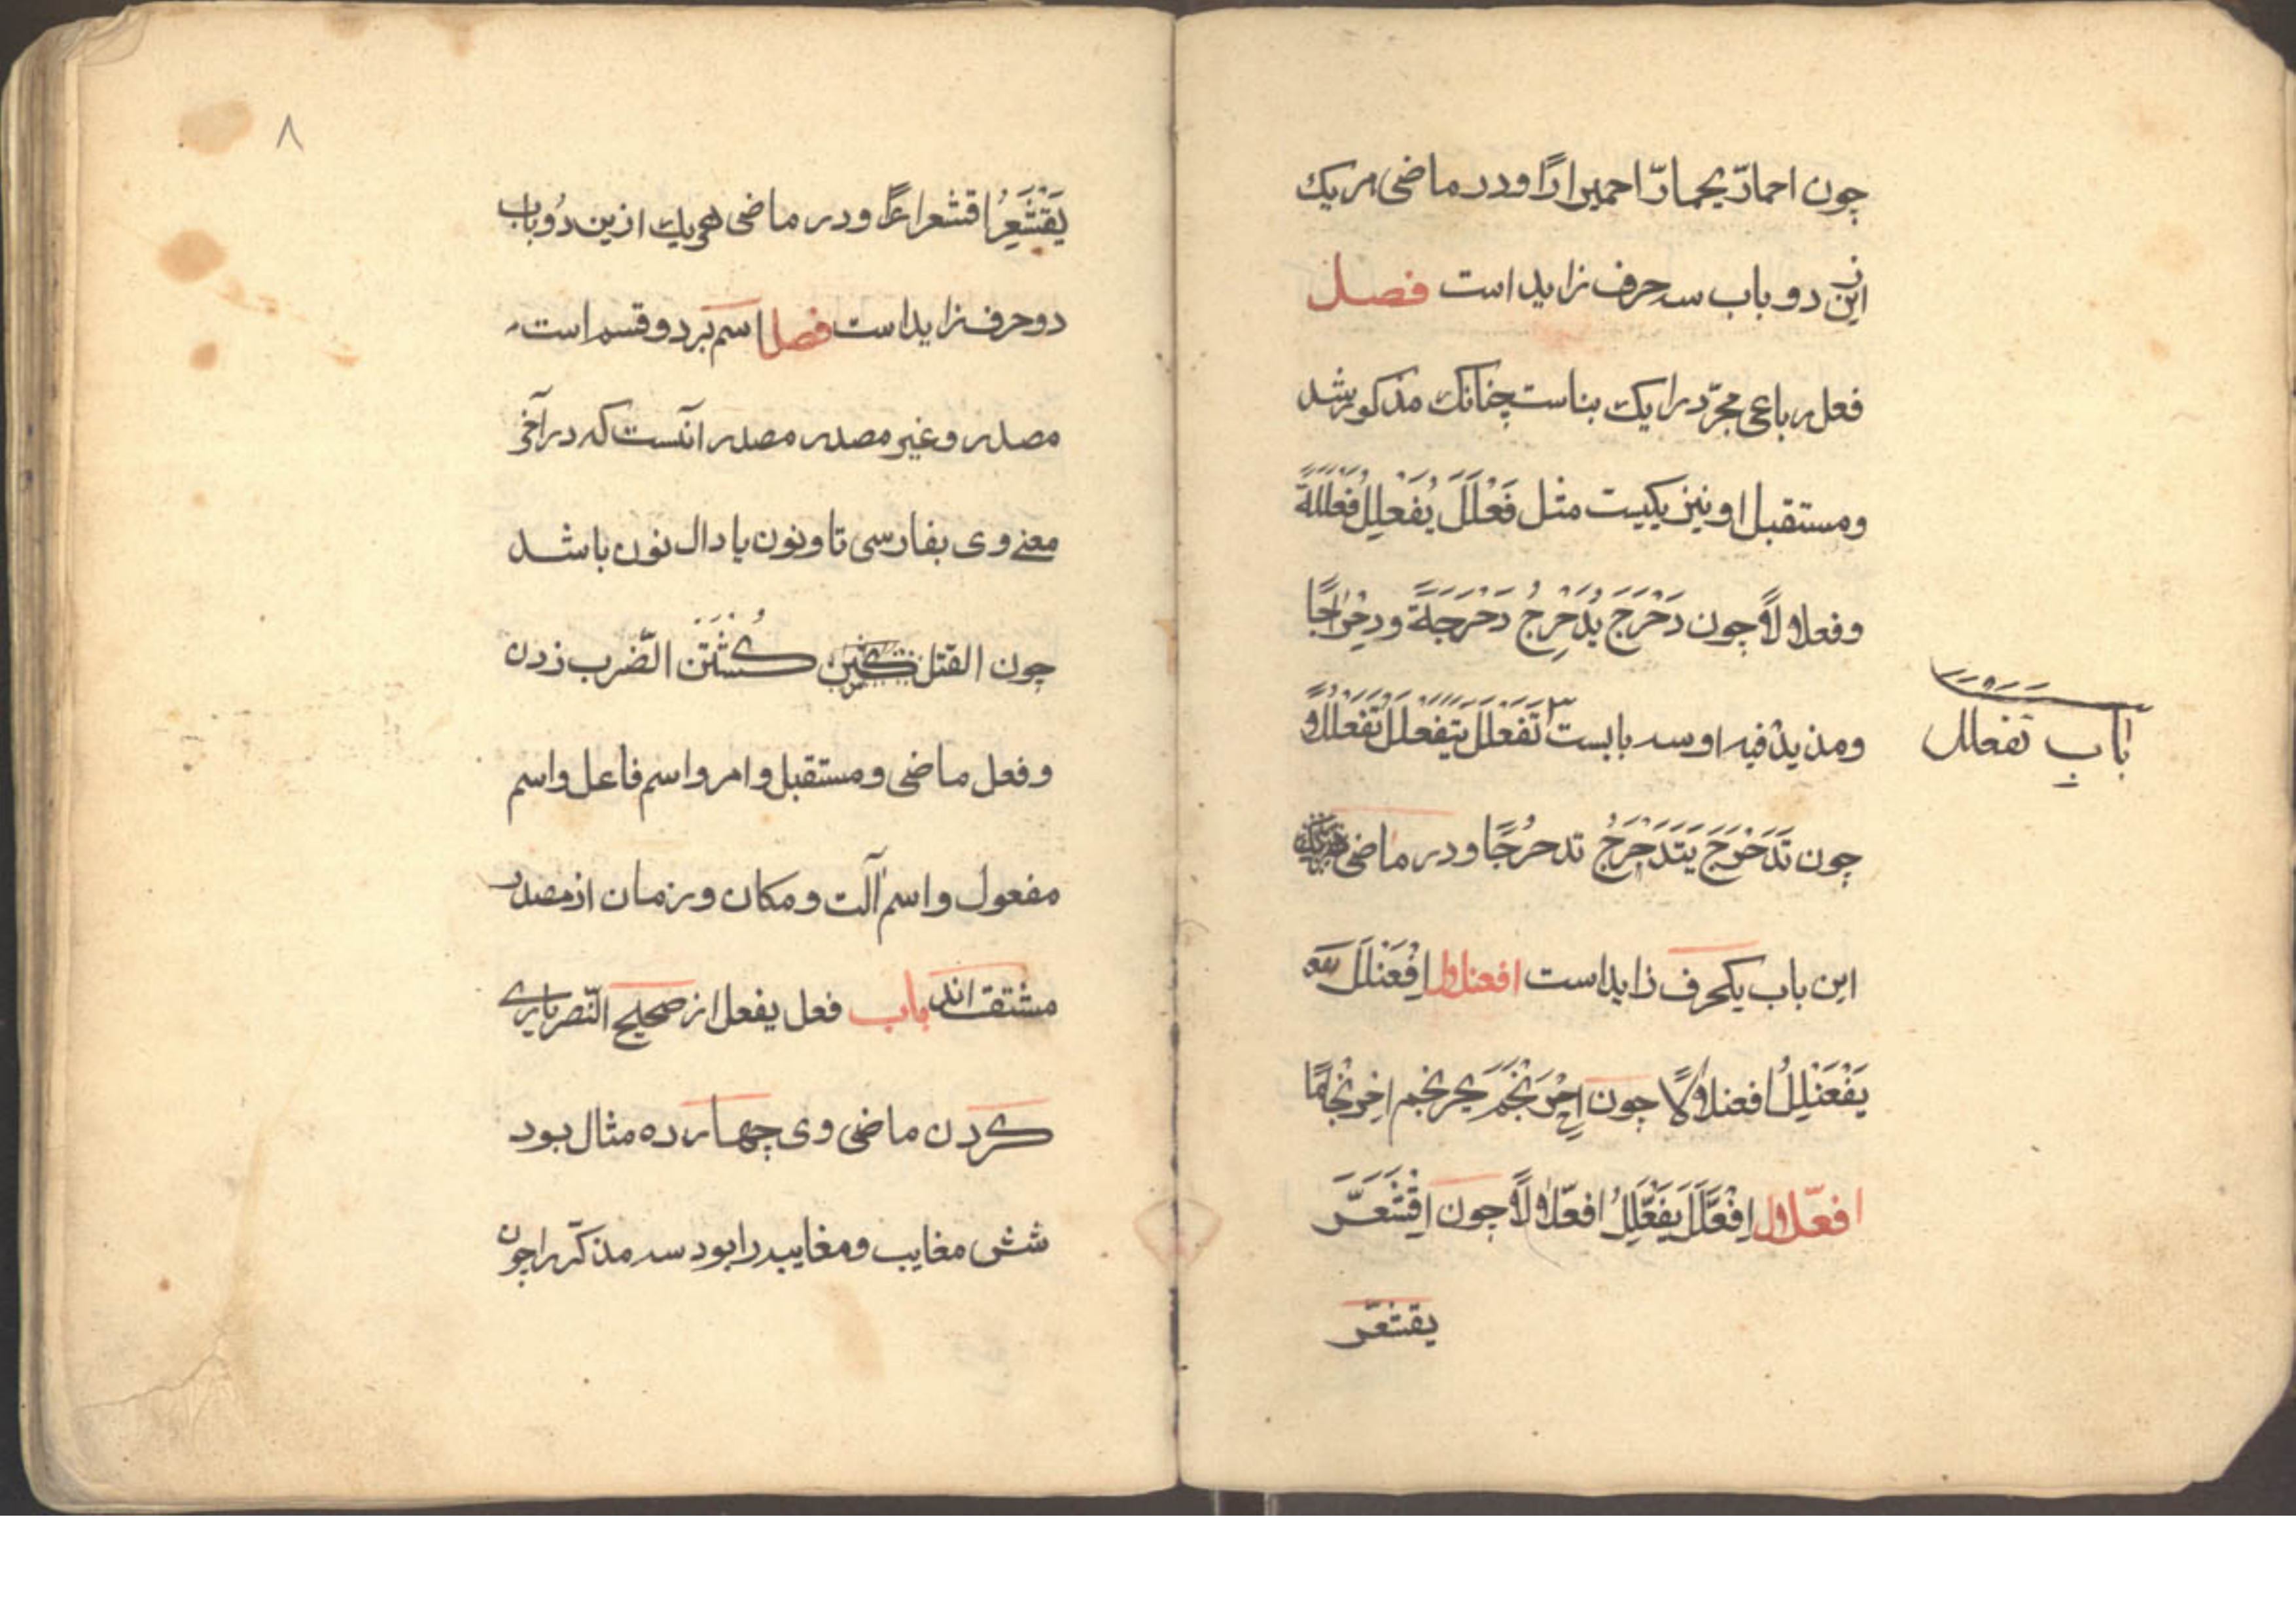 چون احمارّ یحمارّ احمیرارًا ودر ماضی هر یک
ازین دو باب سه حرف زاید است فصل
فعل رباعی مجرّد را یک بناست چنانک مذکور شد
ومستقبل او نیز یکیست مثل فَعْلَلَ یُفَعْلِلُ فَعْلَلَةً
وفعلالًا چون دَحْرَجَ یُدَحْرِجُ دَحْرَجَةً ودِحْرَاجًا
ومزید فیه او سه بابست تَفَعْلَلَ یَتَفَعْلَلُ تَفَعْلُلًا و
باب تفعلل
چون تَدَحْرَجَ یَتَدَحْرَجُ تدحرُجًا ودر ماضی
این باب یکحرف زاید است افعنلال اِفْعَنْلَلَ
یَفْعَنْلِلُ افعنلالًا چون اِحْرَنْجَمَ یحرنجم اِحْرِنْجَامًا
افعلّال اِفْعَلَّلَ یَفْعَلِّلُ افعلّالًا چون اِقْشَعَرَّ
یقشعرّ
۸
یَقْشَعِرُّ اقشعرارًا ودر ماضی هریک ازین دُو باب
دو حرف زاید است فصل اسم بر دو قسم است
مصدر وغیر مصدر مصدر آنست که در آخر
معنے وی بفارسی تا ونون یا دال نون باشد
چون القتل كُشْتَن الضّرب زدن
وفعل ماضی ومستقبل وامر واسم فاعل واسم
مفعول واسم آلت ومکان وزمان از مصدر
مشتق اند باب فعل یفعل از صحیح النّصر یاری
کردن ماضی وی چهارده مثال بود
شش مغایب ومغایبه را بود سه مذکّر را چون